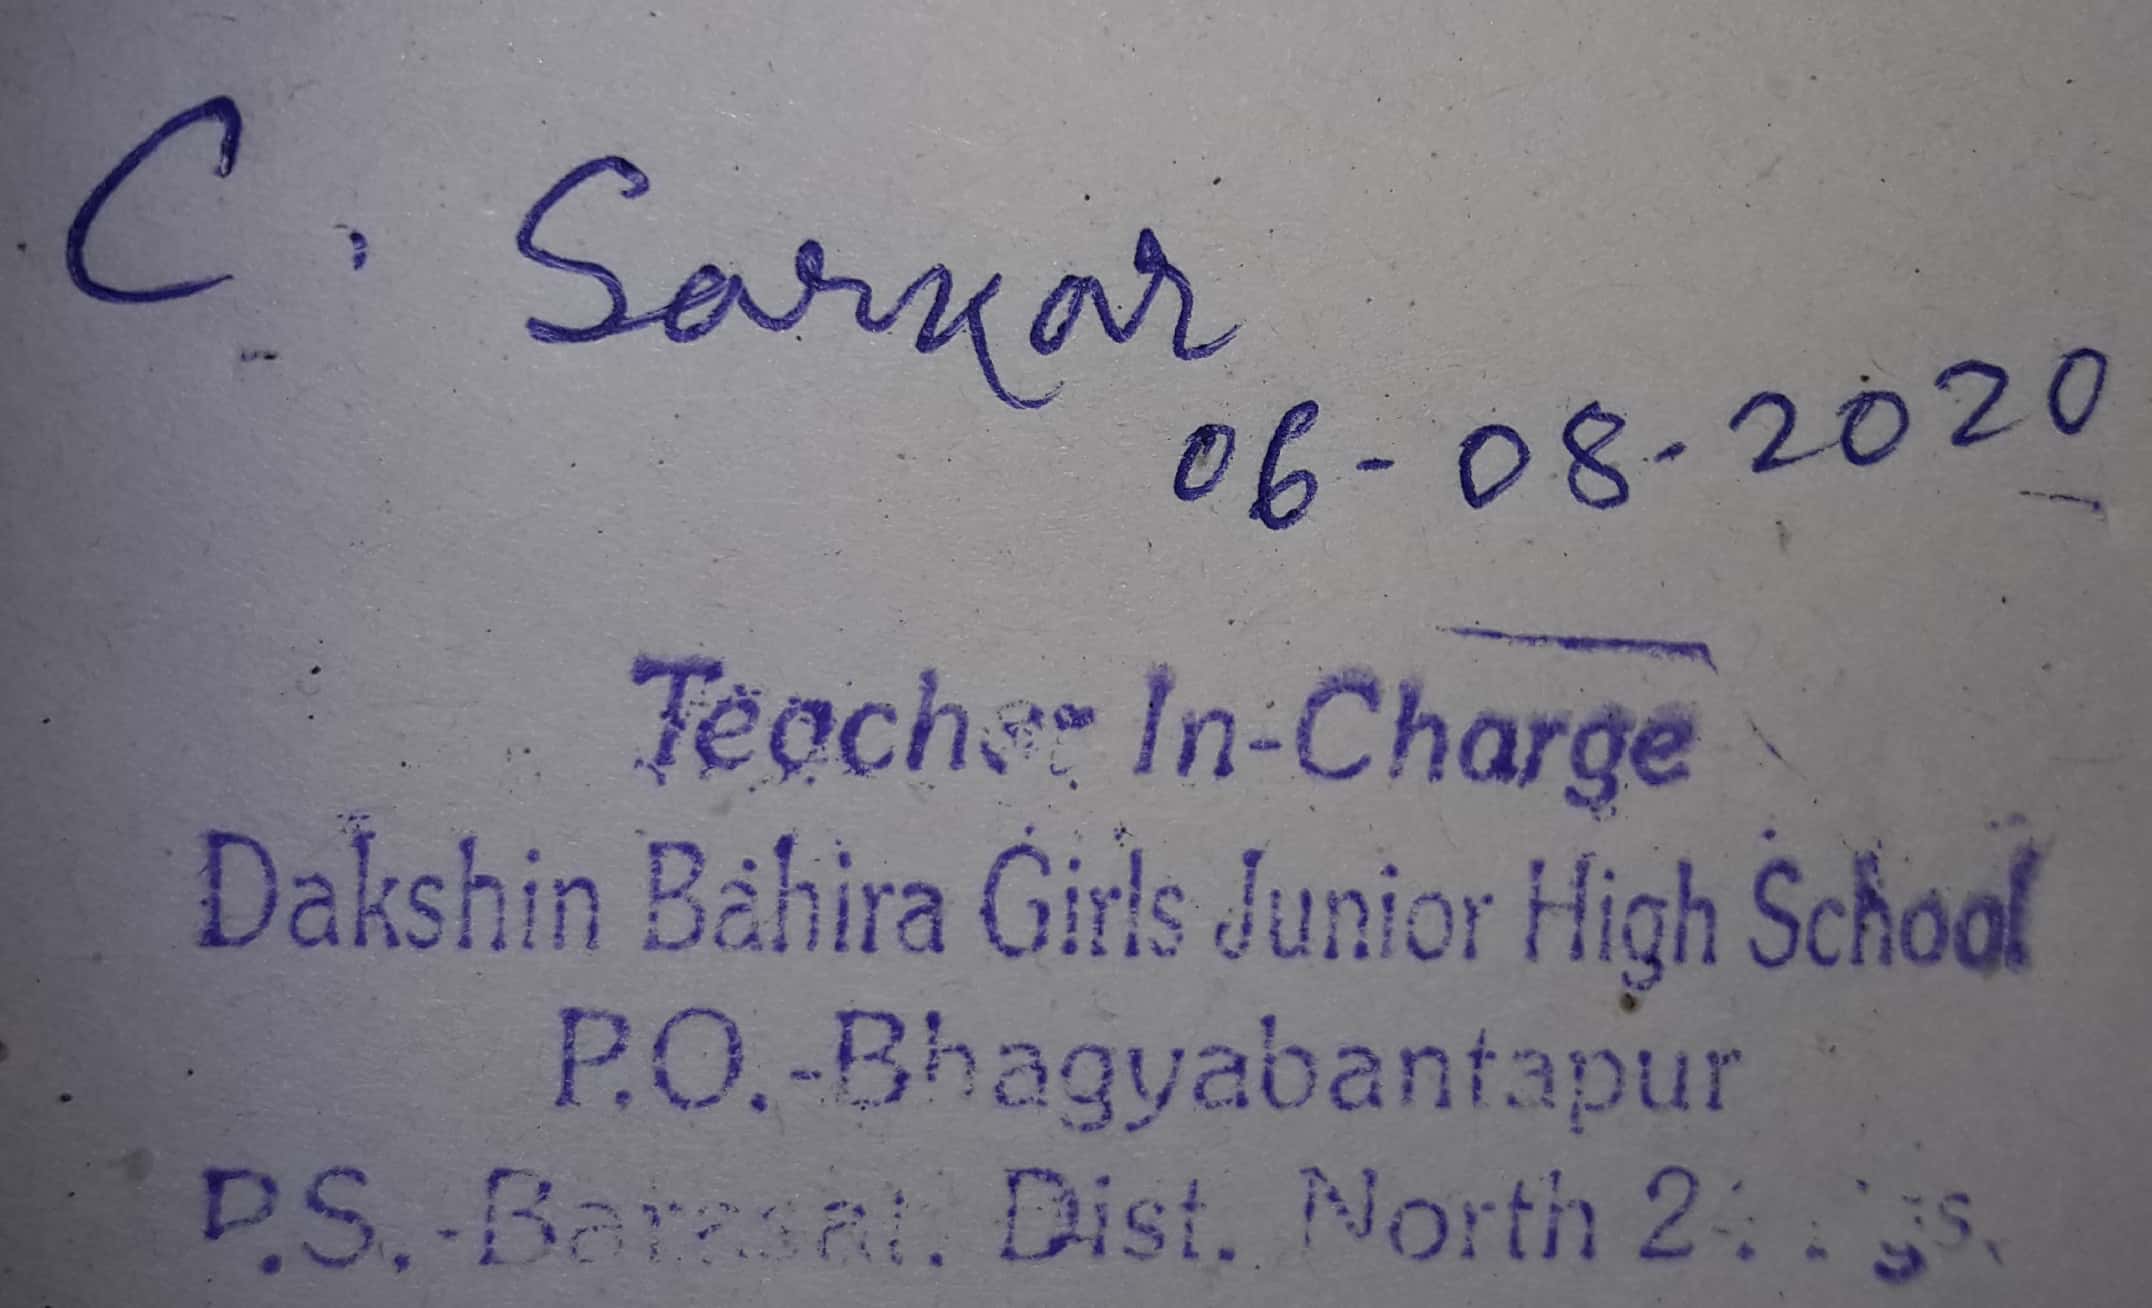 C. Sarkar
06-08-2020
Teacher In-Charge
Dakshin Bahira Girls Junior High School
P.O.-Bhagyabantapur
P.S.-Barasat. Dist. North